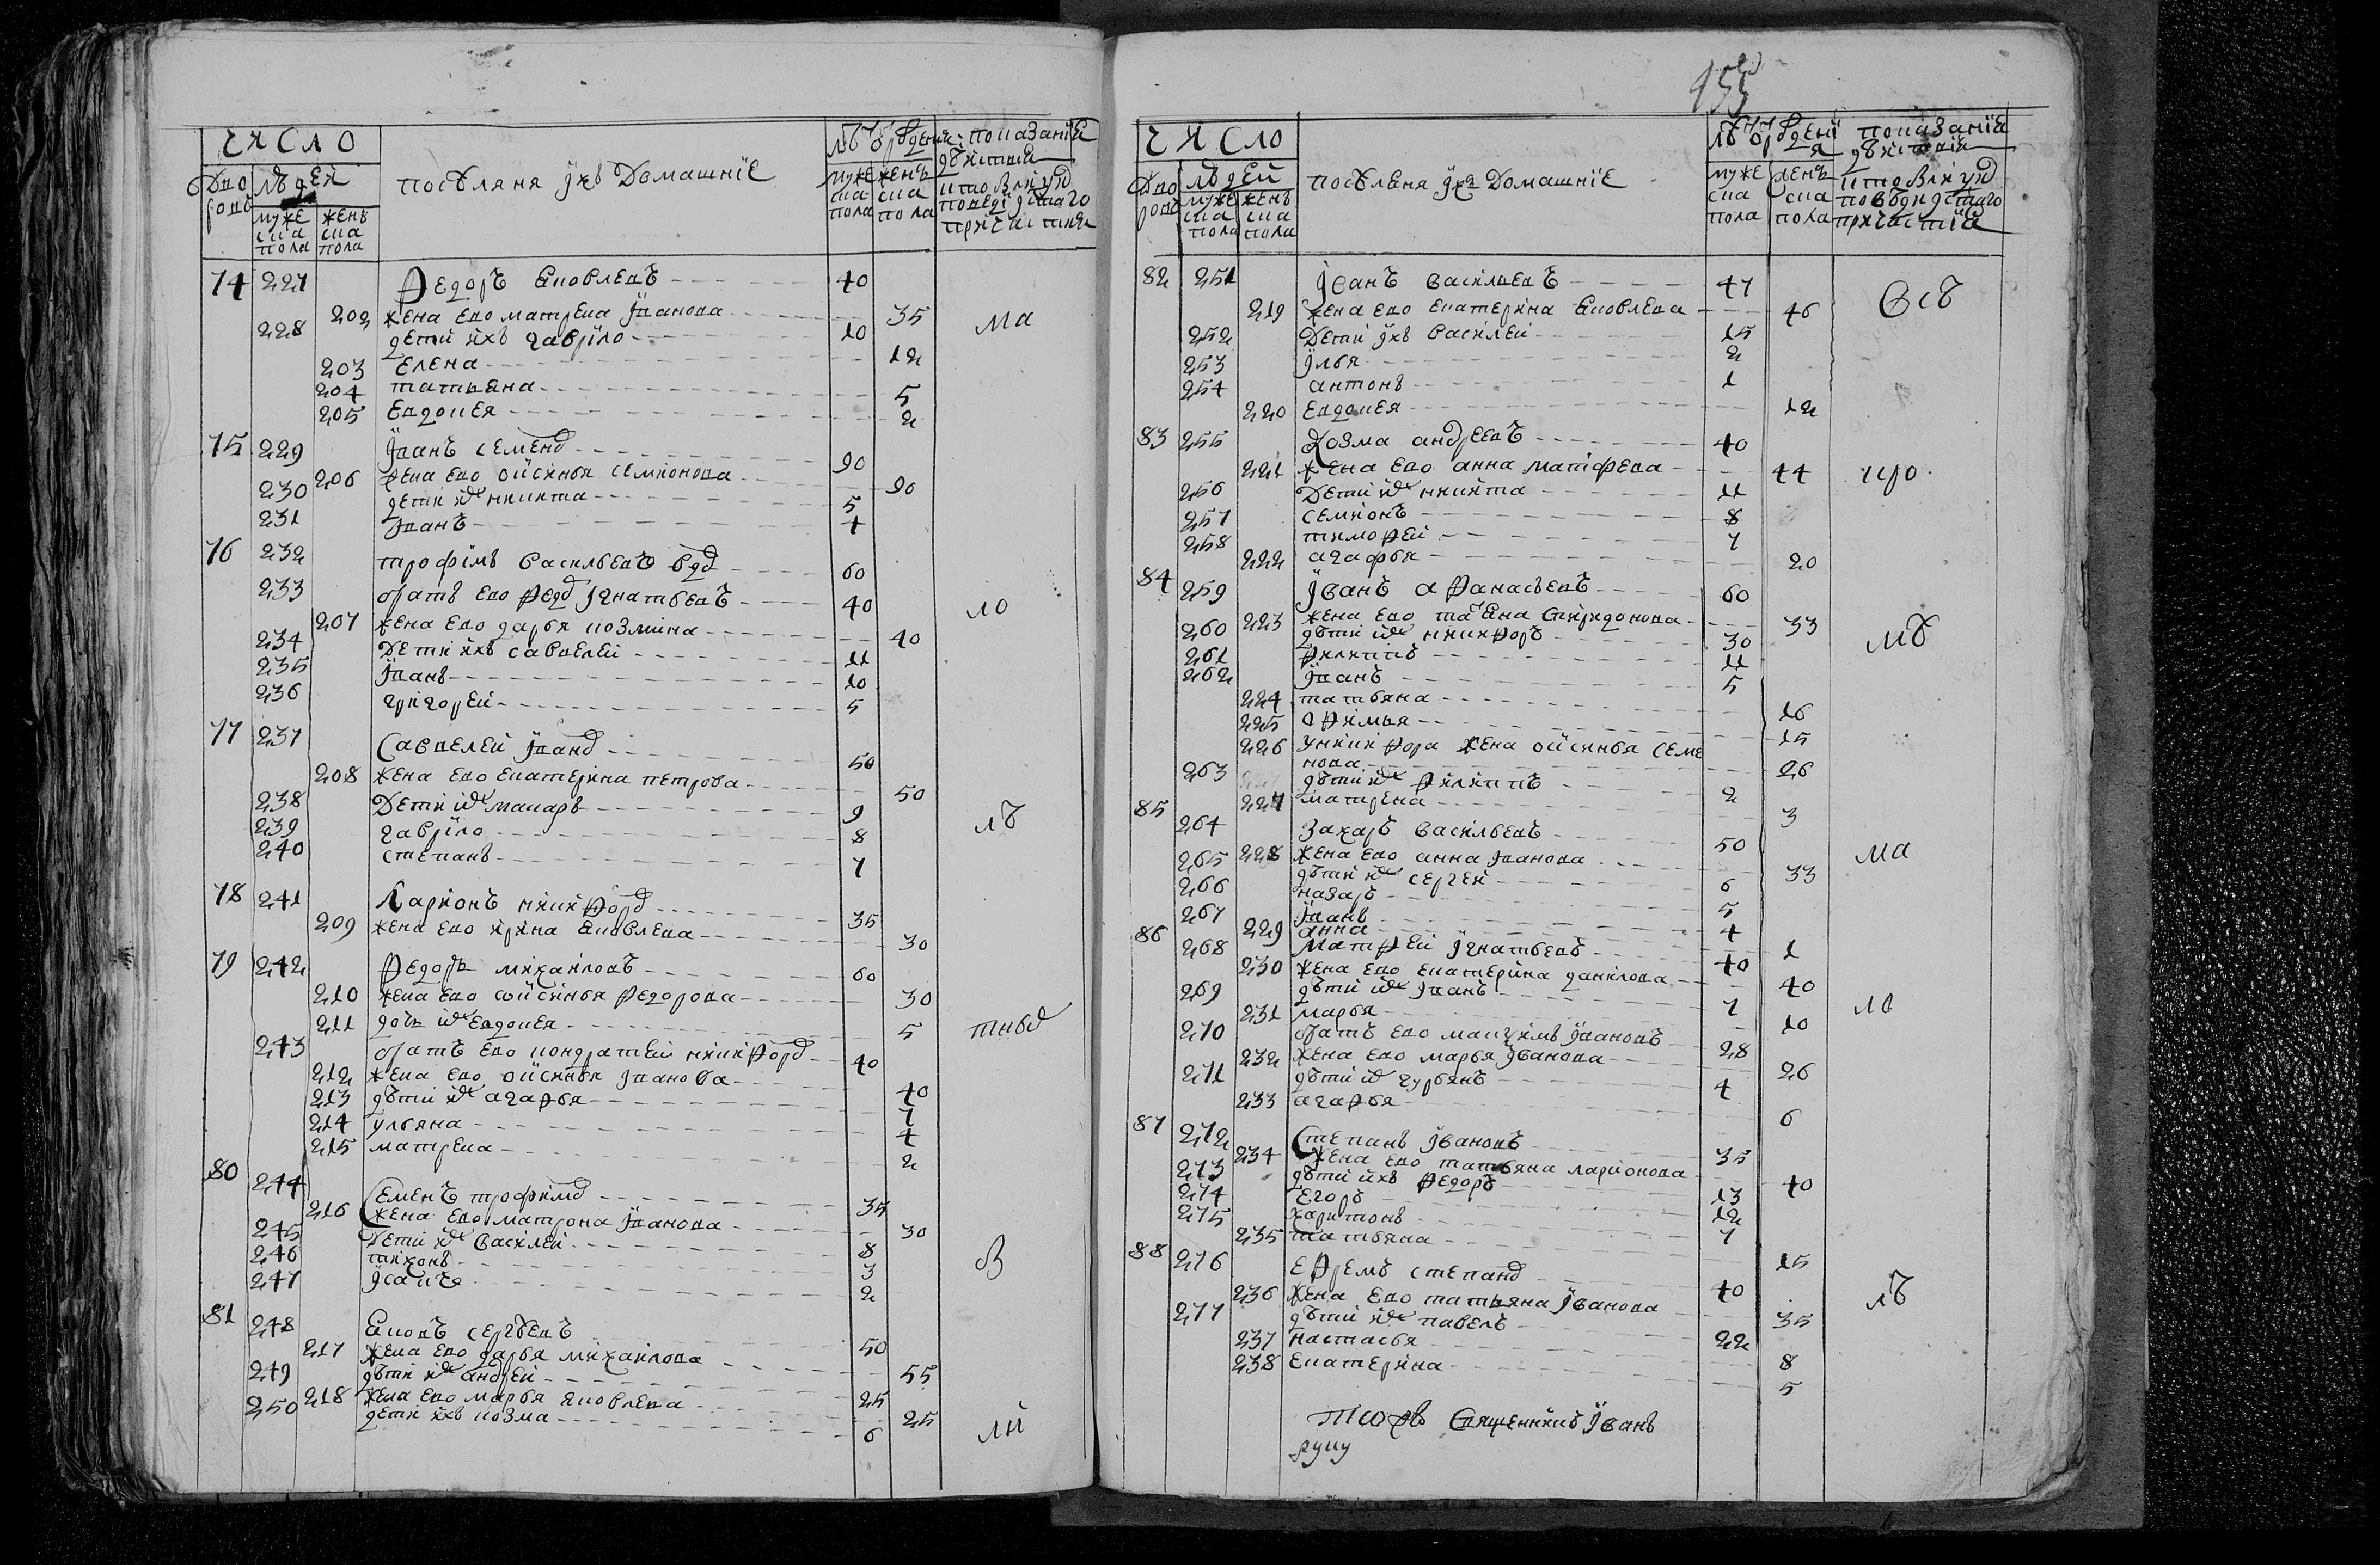 число
дворовъ
людей
муже
ска
пола
женъ
ска
пола
посѣляня ихъ домашніе
муже
ска
пола
женъ
ска
пола
показаніи
74 227 Федоръ Яковлевъ 40
202 жена ево матрена Іванова 35 ма
228 дети ихъ гавріло 10
203 елена 12
204 татьяна 5
205 евдокея 2
75 229 Іванъ семенд 90
206 жена ево оксинья семионова 90
230 дети их никита 5
231 Іванъ 4
76 232 трофимъ васильевъ вдд 60
233 братъ ево федд Ігнатьевъ 40 ло
207 жена ево дарья козмина 40
234 Дети ихъ савелей 11
235 Іванъ 10
236 григорей 5
77 237 Савелей Іванд 50
208 жена ево екатерина петрова 50
238 Дети их макаръ 9
239 гавріло 8 лѣ
240 степанъ 7
78 241 Ларионъ никифорд 35
209 жена ево ирина Яковлева 30
79 242 Федоръ михаиловъ 60
210 жена ево оксинья федорова 30
211 дочь их евдокея 5
243 братъ ево кондратеи никифорд 40
212 жена ево оксинья Іванова 40
213 дѣти их агафья 7
214 ульяна 4
215 матрена 2
80 244 Семенъ трофимд 35
216 жена ево матрона Іванова 30
245 Дети их василей 8
246 тихонъ 3 в
247 Ісакъ 2
81 248 Яковъ сергѣевъ 50
217 жена ево дарья михаилова 55
249 дѣти их андрей 25
218 жена ево марья яковлева 25
250 дети ихъ козма 6 ли
155
число
дворовъ
людей
муже
ска
пола
женъ
ска
пола
посѣленя ихъ домашніе
муже
ска
пола
женъ
ска
пола
показаніе
причастія
82 251 Іванъ васильевъ 47
219 жена ево екатерина Яковлева 46 Ѳсѣ
252 Дети ихъ василеи 15
253 Илья 2
254 антонъ 1
220 евдокея 12
83 255 Козма андреевъ 40
221 жена ево анна матфева 44 про
256 Дети их никита 11
257 семионъ 8
258 тимофей 7
222 агафья 20
84 259 Іванъ афанасьевъ 60
223 жена ево татьяна спиридонова 33
260 дѣти их никифоръ 30 мѣ
261 филиппъ 11
262 Іванъ 5
224 татьяна 16
225 офимья 15
226 у никифора жена оксинья семе
нова 26
263 дѣти их филиппъ 2
227 матрена 3
85 264 Захаръ васильевъ 50
228 жена ево анна Іванова 33 ма
265 дѣти их сергей 6
266 назаръ 5
267 Іванъ 4
229 анна 1
86 268 Матфеи Ігнатьевъ 40
230 жена ево екатерина данилова 40
269 дѣти их Іванъ 7
231 марья 10 лв
270 братъ ево максимъ Івановъ 28
232 жена ево марья Іванова 26
271 дѣти их гурьянъ 4
233 агафья 6
87 272 Степанъ Івановъ 35
234 жена ево татьяна ларионова 40
273 дѣти ихъ федоръ 13
274 Егоръ 12
275 харитонъ 7
235 татьяна 15
88 276 Ефремъ степанд 40
236 жена ево татьяна Іванова 35 лѣ
277 дѣти их павелъ 22
237 настасья 8
238 екатерина 5
священникъ Іванъ
руку